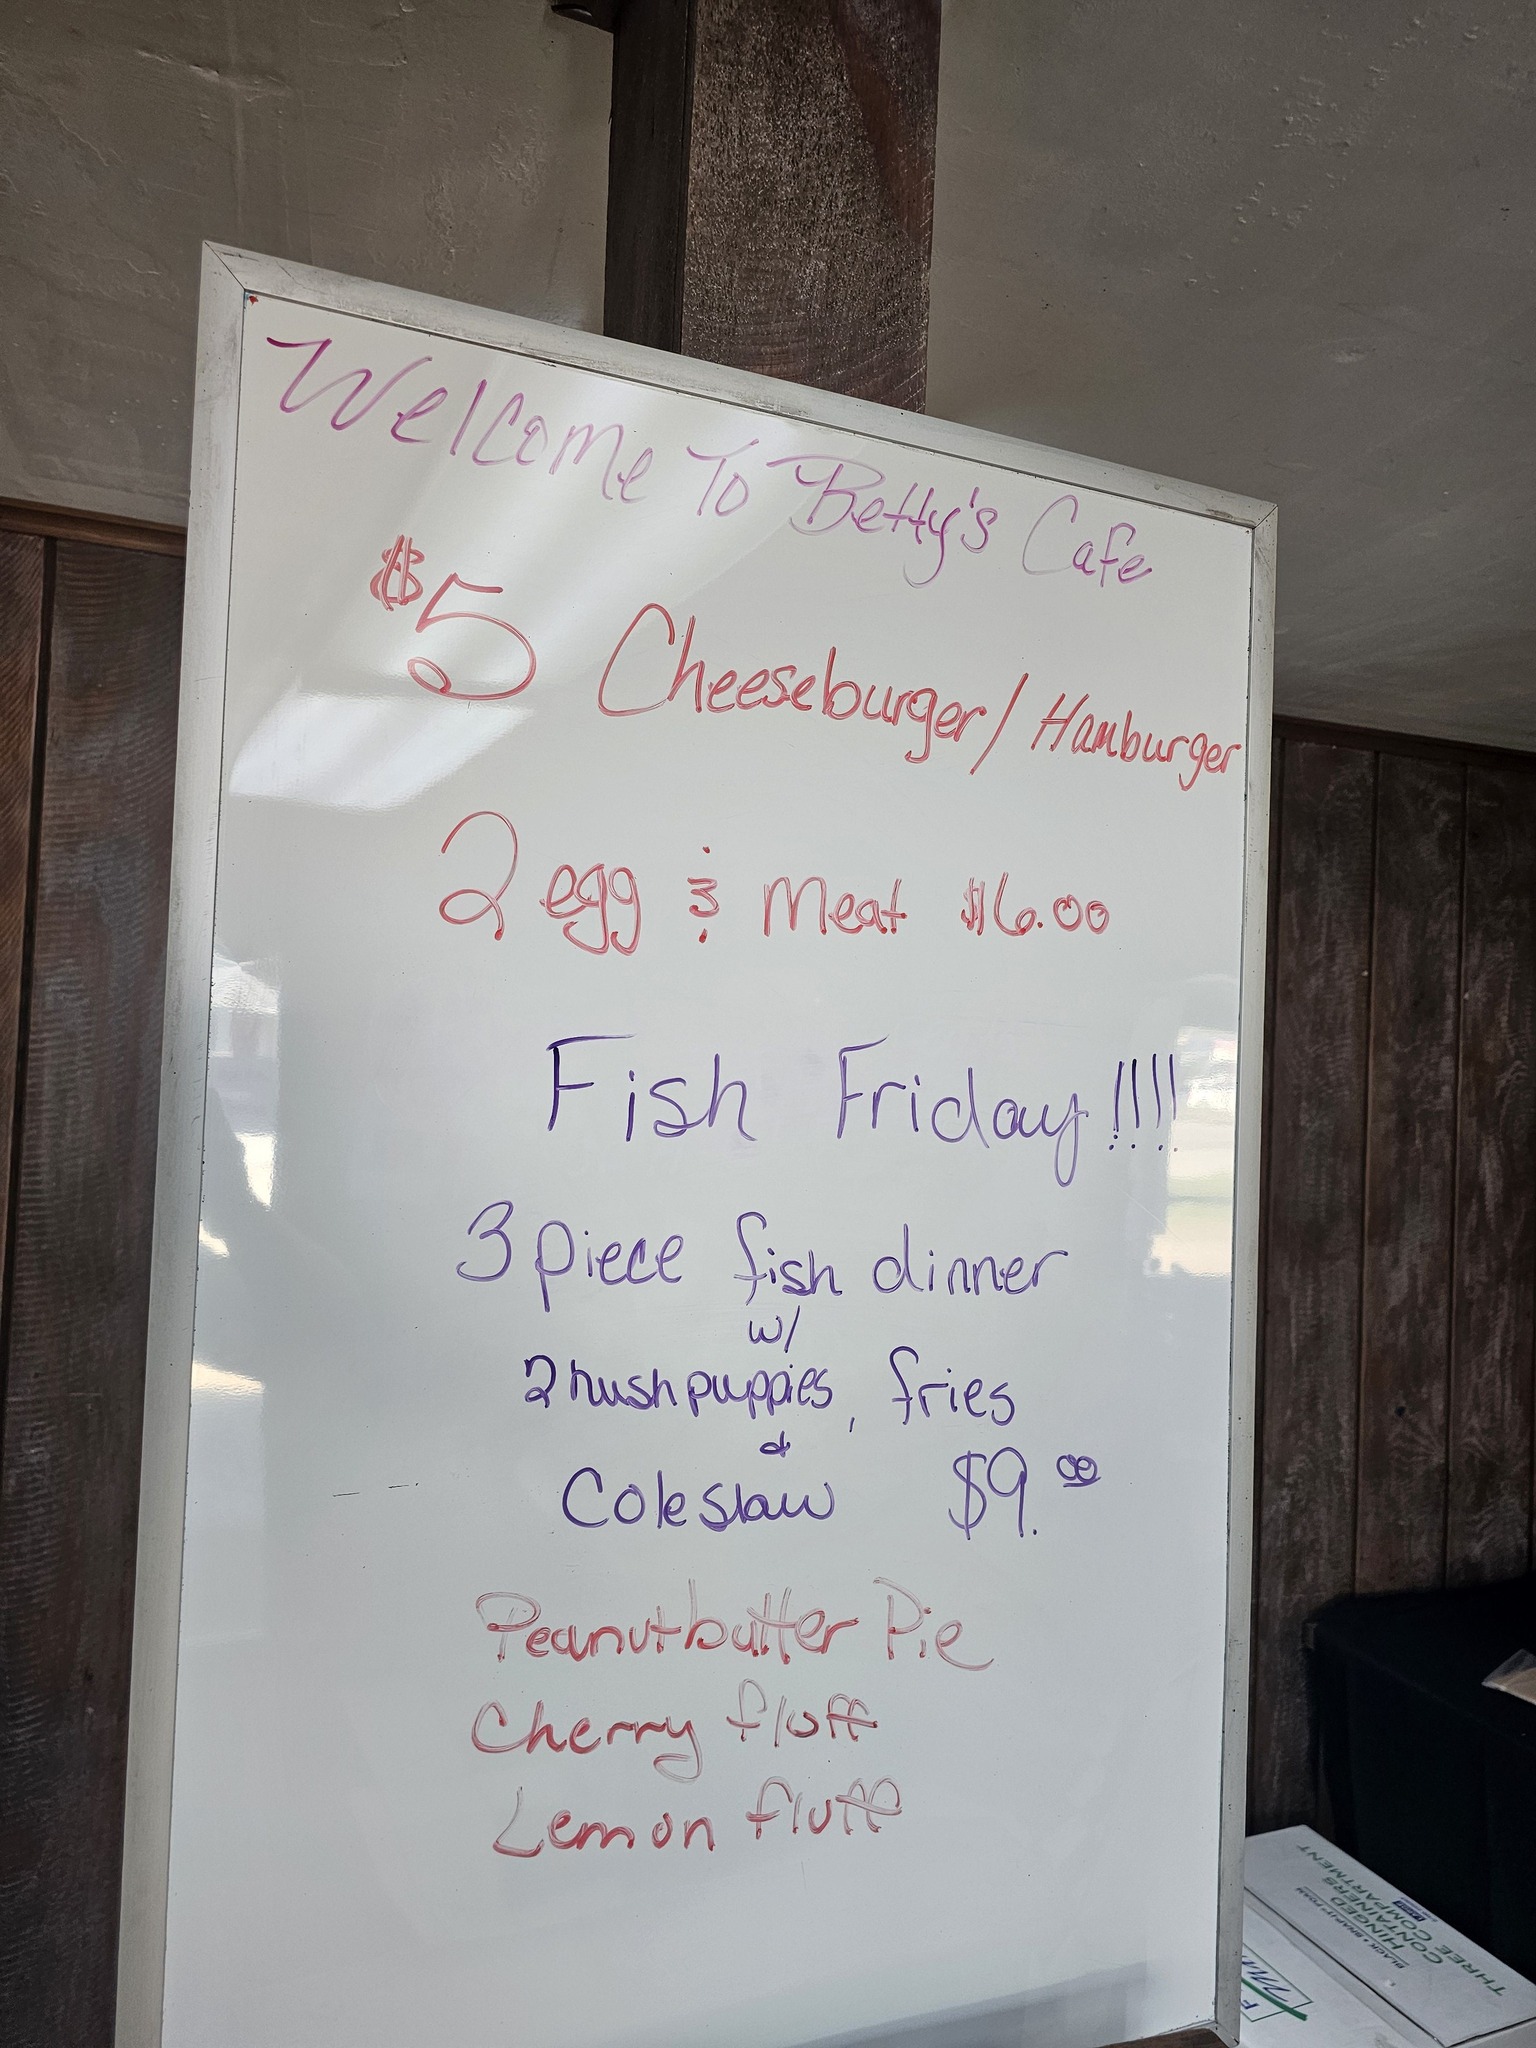 Welcome To Betty's Cafe
$5 Cheeseburger/Hamburger
2 egg & Meat $6.00
Fish Friday!!!!
3 piece fish dinner
w/
2 hushpuppies, fries
&
Coleslaw $9.00
Peanutbutter Pie
Cherry fluff
Lemon fluff
BLACK • SNAPIT™ FOAM
HINGED
CONTAINERS
THREE COMPARTMENT